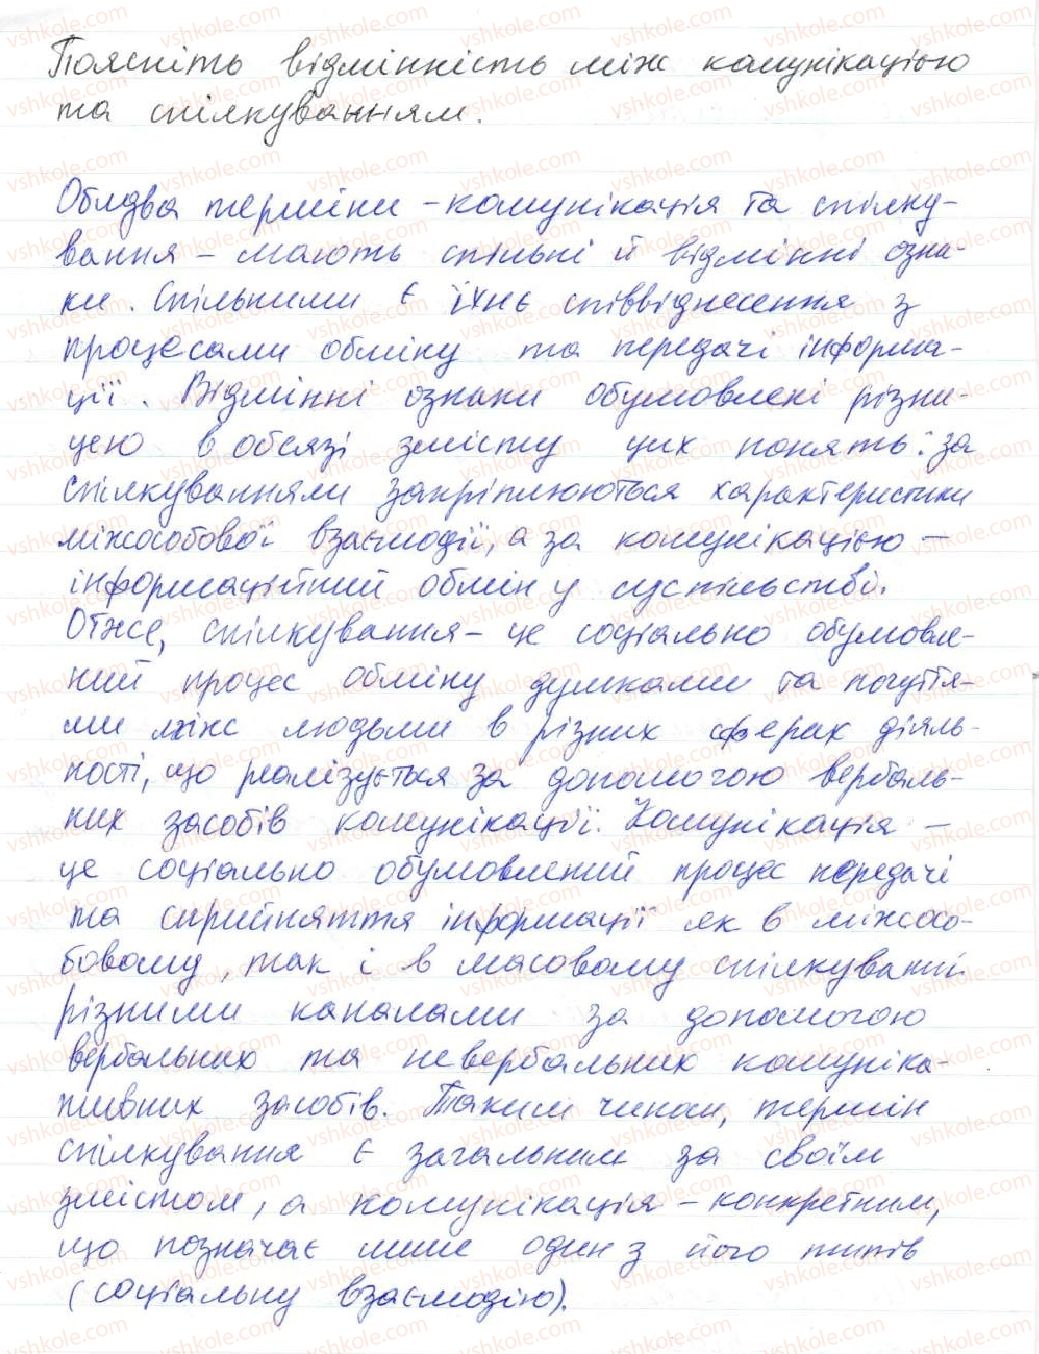 Поясніть відмінність між комунікацією
та спілкуванням.
Обидва терміни – комунікація та спілку-
вання – мають спільні й відмінні озна-
ки. Спільними є їхнє співвіднесення з
процесами обміну та передачі інформа-
ції. Відмінні ознаки обумовлені різни-
цею в обсязі змісту цих понять: за
спілкуванням закріплюються характеристики
міжособової взаємодії, а за комунікацією –
інформаційний обмін у суспільстві.
Отже, спілкування – це соціально обумовле-
ний процес обміну думками та почуття-
ми між людьми в різних сферах діяль-
ності, що реалізується за допомогою вербаль-
них засобів комунікації. Комунікація –
це соціально обумовлений процес передачі
та сприйняття інформації як в міжосо-
бовому, так і в масовому спілкуванні
різними каналами за допомогою
вербальних та невербальних комуніка-
тивних засобів. Таким чином, термін
спілкування є загальним за своїм
змістом, а комунікація – конкретним,
що позначає лише один з його типів
(соціальну взаємодію).